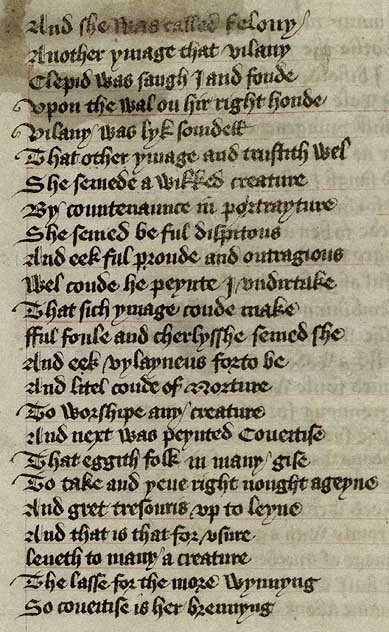 And she was called felony
Another ymage that vilany
Clepid was saugh I and fonde
Vpon the wal on hir right honde
Vilany was lyk somdell
That other ymage and trustith wel
She semede a wikked creature
By countenaunce in portrayture
She semed be ful dispitous
And eek ful proude and outragious
Wel coude he peynte I vndirtake
That sich ymage coude make
Fful foule and cherlysshe semed she
And eek vylayneus forto be
And litel coude of norture
To worshipe any creature
And next was peynted Coueitise
That eggith folk in many gise
To take and yeue right nought ageyne
And gret tresouris vp to leyne
And that is that for vsure
leueth to many a creature
The lasse for the more wynnyng
So coueitise is her brennyng